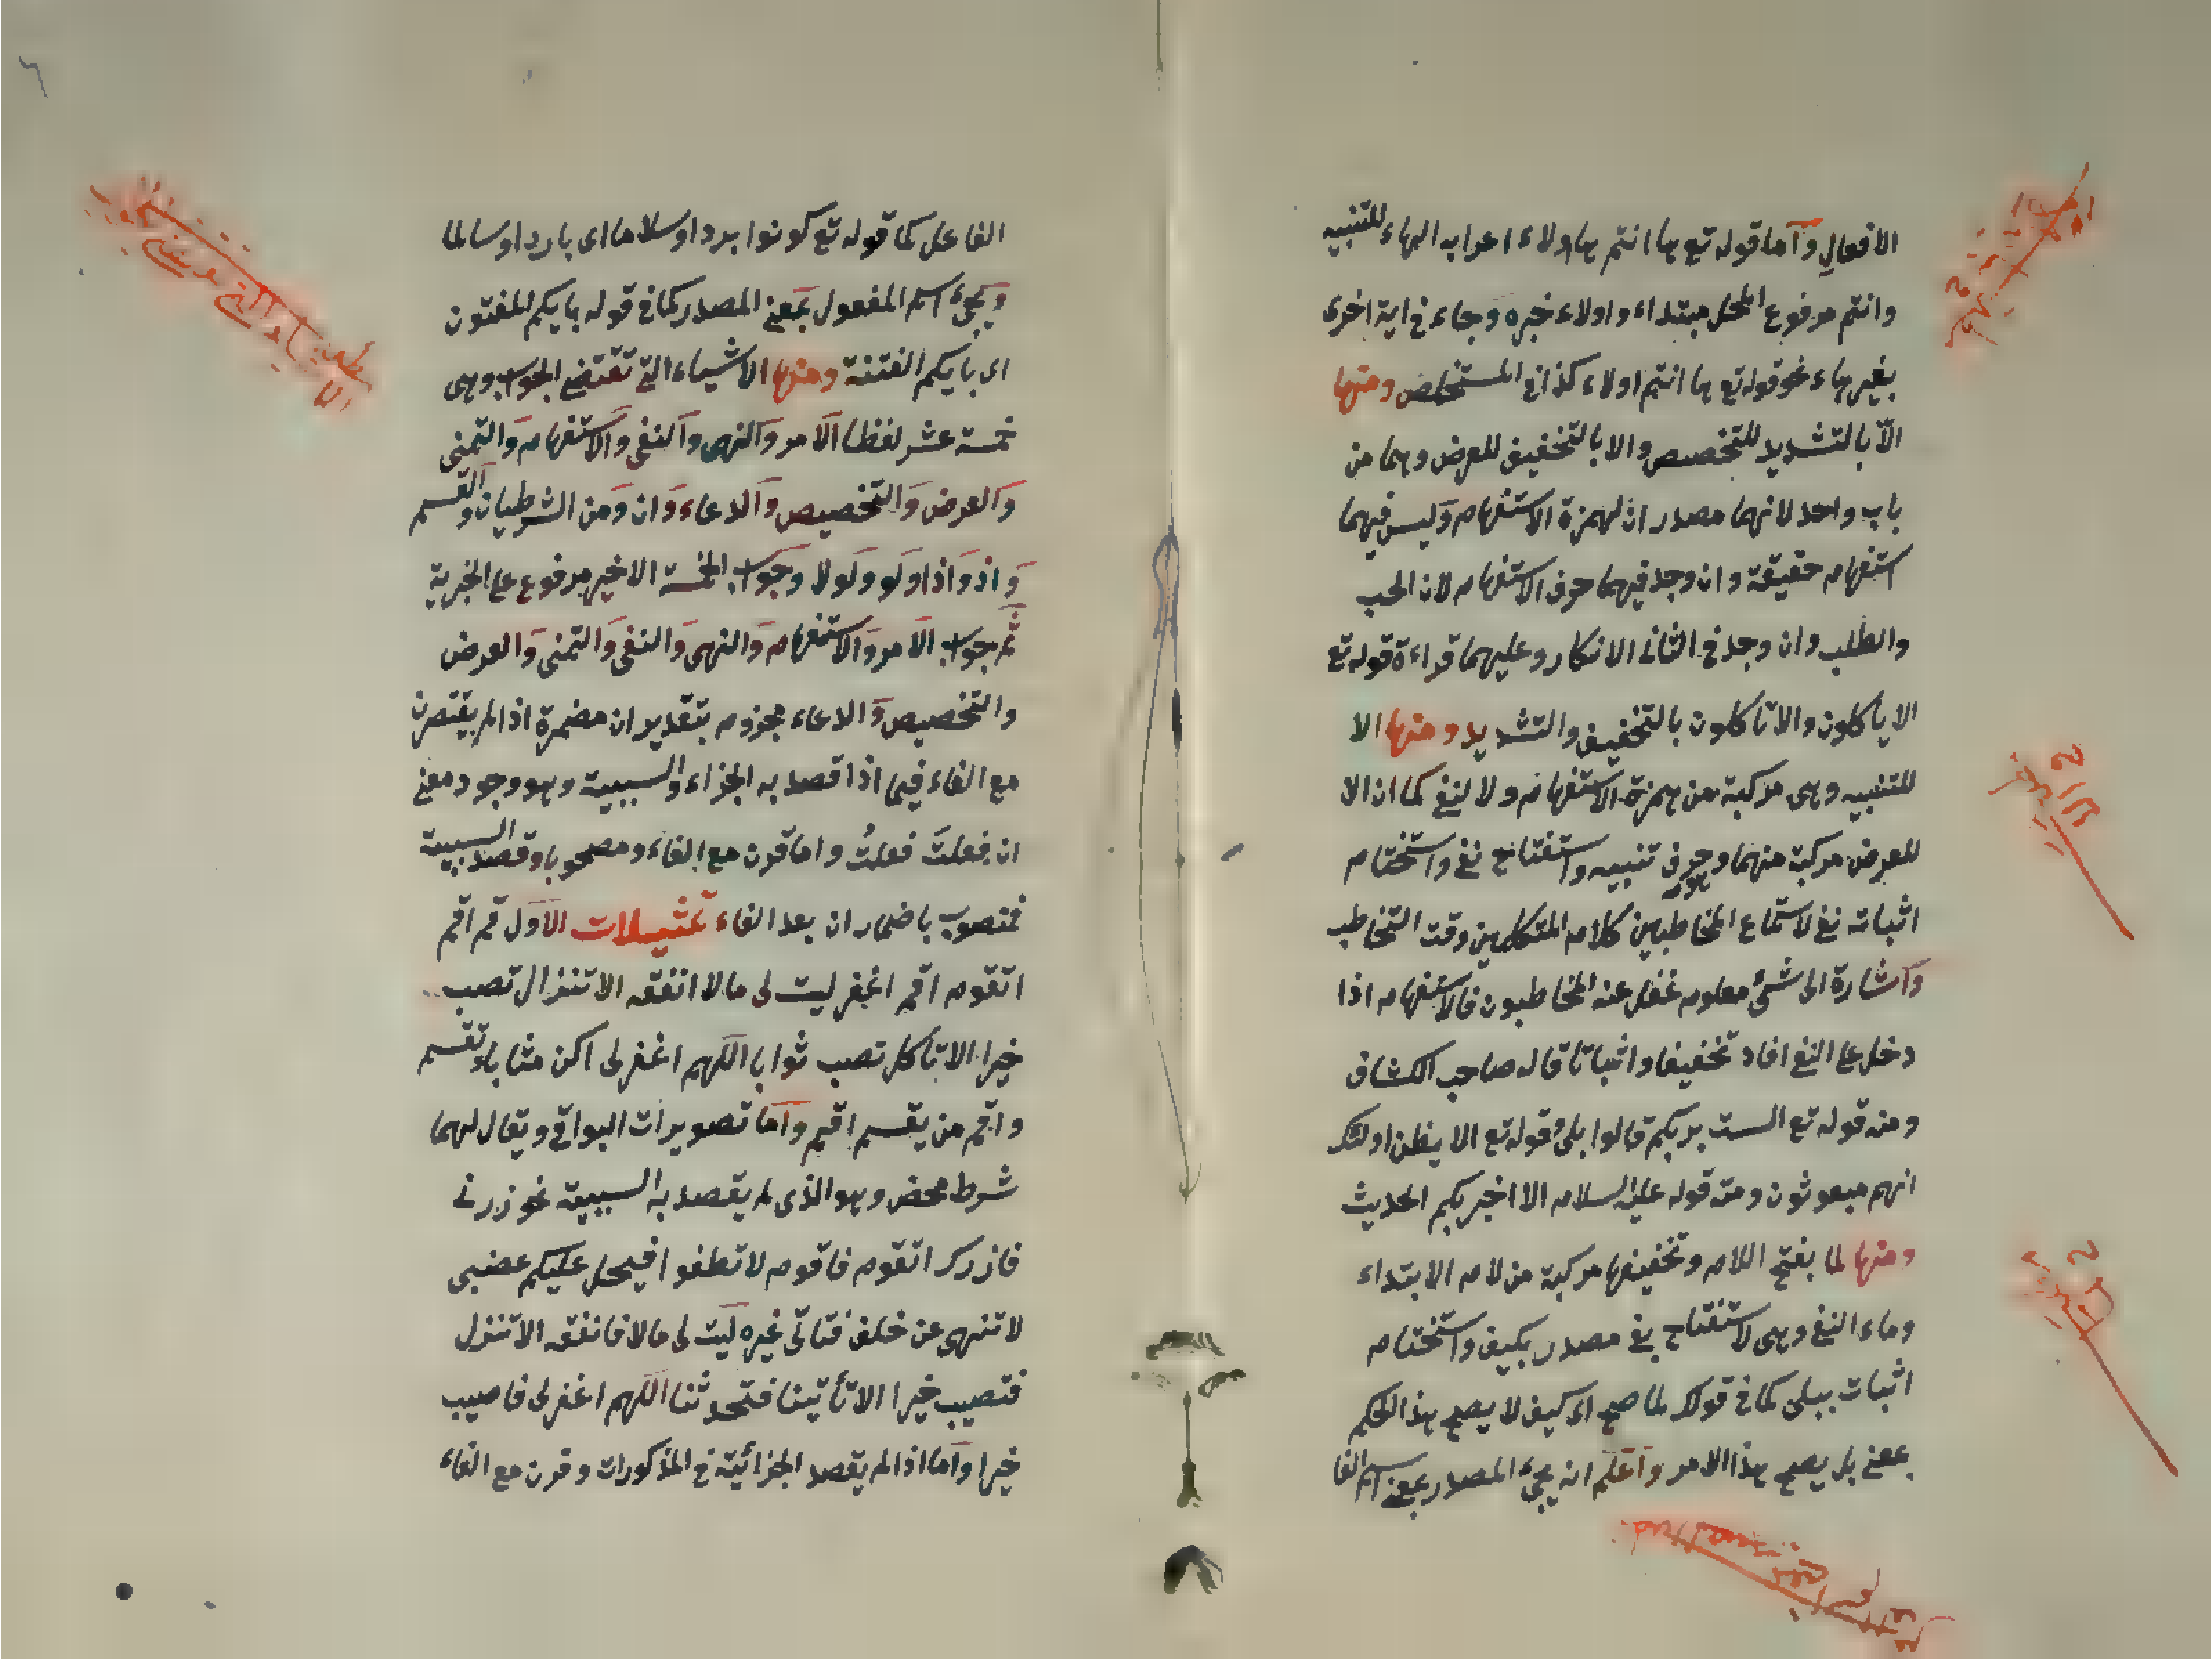 الافعال واما قوله تع ها انتم هاولاء اعرابه الهاء للتنبيه
وانتم مرفوع المحل مبتداء واولاء خبره وجاء في اية اخرى
بغير هاء نحو قوله تع ها انتم اولاء كذا في المستخلص ومنها
الّا بالتشديد للتخصيص والا بالتخفيف للعرض وهما من
باب واحد لانهما مصدران لهمزة الاستفهام وليس فيهما
استفهام حقيقة وان وجد فيهما حرف الاستفهام لان الحب
والطلب وان وجد في الثاني الانكار وعليهما قراءة قوله تع
الا ياكلون والا تأكلون بالتخفيف والتشديد ومنها الا
للتنبيه وهى مركبة من همزة الاستفهام ولا لنفي كما ان الا
للعرض مركبة منهما وحرف تنبيه واستفتاح نفي واستختام
اثباته نفي لاستماع المخاطبين كلام المتكلمين وقت التخاطب
واشارة الى شئ معلوم غفل عنه المخاطبون فالاستفهام اذا
دخل على النفي افاد تخفيفا واثباتا قاله صاحب الكشاف
ومنه قوله تع الست بربكم قالوا بلى وقوله تع الا يظن اولئك
انهم مبعوثون ومنه قوله عليه السلام الا اخبركم الحديث
ومنها لما بفتح اللام وتخفيفها مركبة من لام الابتداء
وماء النفي وهى لاستفتاح نفي مصدر بكيف واستختام
اثبات ببلى كما في قولك لما صح اى كيف لا يصح هذا الحكم
بمعنى بل يصح هذا الامر واعلم انه يجئ المصدر بمعنى اسم الفا
الفاعل كما قوله تع كونوا بردا وسلاما اى باردا وسالما
ويجئ اسم المفعول بمعنى المصدر كما في قوله بايكم المفتون
اى بايكم الفتنة ومنها الاشياء التي تقتضي الجواب وهى
خمسة عشر لفظا الامر والنهى والنفى والاستفهام والتمنى
والعرض والتخصيص والدعاء وان ومن الشرطيان والقسم
واذ واذا ولو ولولا وجواب الخمسة الاخير مرفوع على الخبرية
ثم جواب الامر والاستفهام والنهى والنفى والتمنى والعرض
والتخصيص والدعاء مجزوم بتقدير ان مضمرة اذا لم يقترن
مع الفاء فيما اذا قصد به الجزاء والسببية وهو وجود معنى
ان فعلتَ فعلتُ واما قرن مع الفاء ومصحوبا وقصد السببية
فمنصوب باضمار ان بعد الفاء تمثيلات الاول قم اقم
اتقوم اقم اغفر ليت لى مالا انفقه الا تنزل تصب
خيرا الا تأكل تصب ثوابا اللهم اغفر لى اكن مثابا وتقسم
واقم من يقسم اقم واما تصويرات البواقى ويقال لهما
شرط محض وهو الذى لم يقصد به السببية نحو زرنى
فازرك اتقوم فاقوم لا تطغوا فيحل عليكم غضبى
لا تنهى عن خلق فتاتى غيره ليت لى مالا فانفقه الا تنزل
فتصيب خيرا الا تأتينا فتحدثنا اللهم اغفر لى فاصيب
خيرا واما اذا لم يقصد الجزائية في المذكورات وقرن مع الفاء